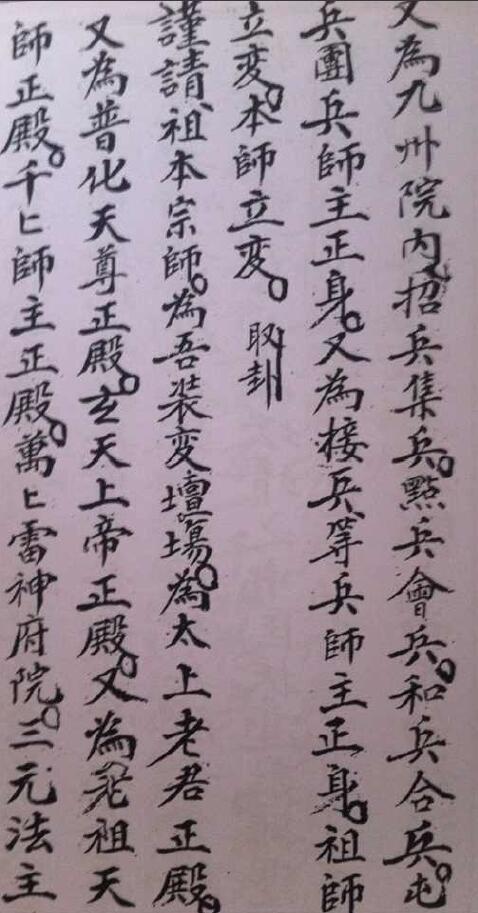 又為九州院内招兵集兵。點兵會兵。和兵合兵。屯
兵團兵師主正身。又為接兵、等兵師主正身。祖師
立変。本師立変。 取卦
謹請、祖本宗師。為吾装变壇場。為太上老君正殿。
又為普化天尊正殿。玄天上帝正殿。又為老祖天
師正殿。千匕師主正殿。萬匕雷神府院。三元法主